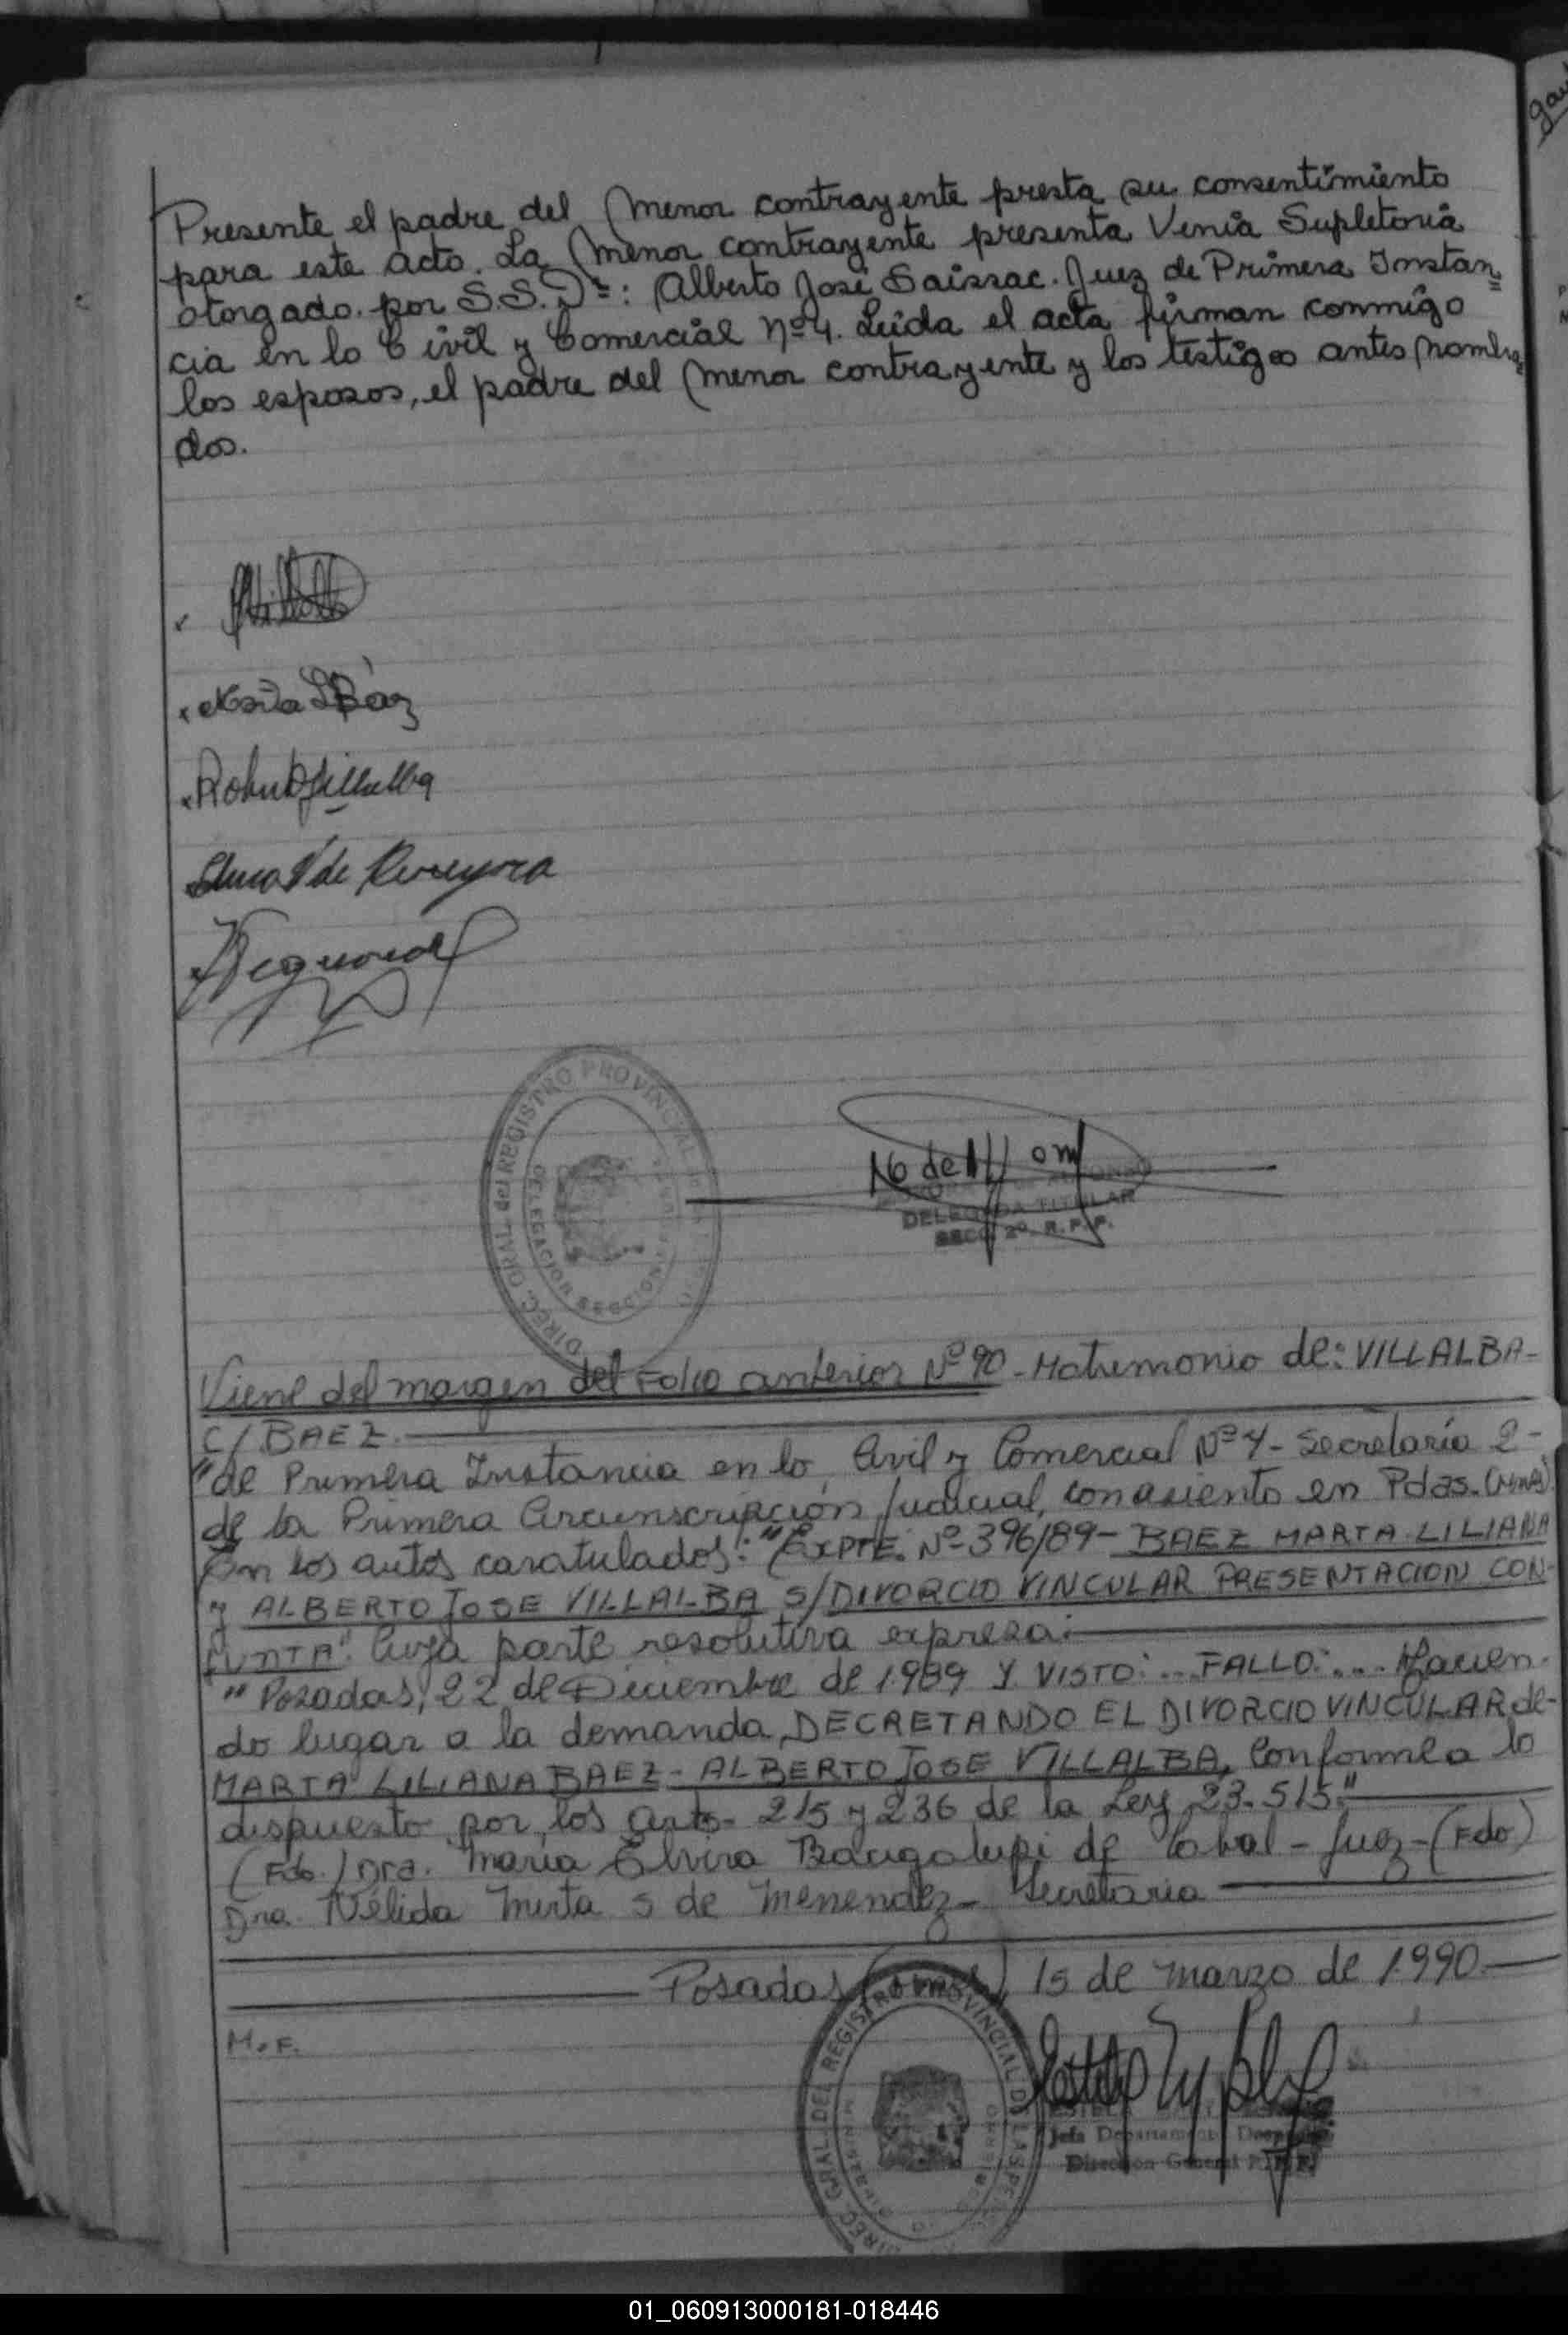 Presente el padre del menor contrayente presta su consentimiento
para este acto. La menor contrayente presenta Venia Supletoria
otorgado por S.S. Dr: Alberto José Saissac. Juez de Primera Instan=
cia en lo Civil y Comercial Nº 4. Leída el acta firman conmigo
los esposos, el padre del menor contrayente y los testigos antes nombra=
dos.
Marta L Báez
Villalba
de Pereyra
DIREC. GRAL. del REGISTRO PROVINCIAL
DELEGACION
DELEGADA TITULAR
SECC. 2º. R.P.P.
Viene del margen del Folio anterior Nº 90 - Matrimonio de: VILLALBA-
C/ BAEZ.
"de Primera Instancia en lo Civil y Comercial Nº 4 - Secretaría 2-
de la Primera Circunscripción Judicial, con asiento en Pdas. (Mnes)
En los autos caratulados: "EXPTE. Nº 396/89 - BAEZ MARTA LILIANA
y ALBERTO JOSE VILLALBA S/DIVORCIO VINCULAR PRESENTACION CON-
JUNTA". Cuya parte resolutiva expresa:
"Posadas, 22 de Diciembre de 1989 Y VISTO: ... FALLO: .... Hacien-
do lugar a la demanda, DECRETANDO EL DIVORCIO VINCULAR de-
MARTA LILIANA BAEZ - ALBERTO JOSE VILLALBA, Conforme a lo
dispuesto por los arts- 215 y 236 de la Ley 23.515."
(Fdo.) Dra. María Elvira Bacigalupi de Cabal - Juez - (Fdo)
Dra. Nélida Mirta S de Menendez - Secretaria
Posadas (Mnes), 15 de marzo de 1990.-
M.F.
DIREC. GRAL. DEL REGISTRO PROVINCIAL DE LAS PE
Jefa Departamento
Dirección General R.P.P.
01_060913000181-018446